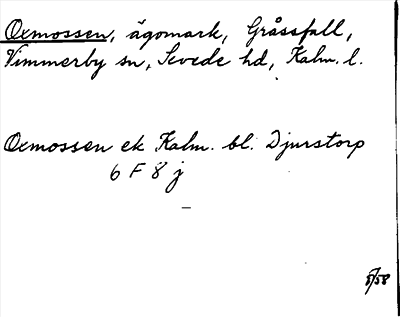 Oxmossen, ägomark, Gråssfall,
Vimmerby sn, Sevede hd, Kalm. l.
Oxmossen ek Kalm. bl. Djurstorp
6 F 8 j
5/58